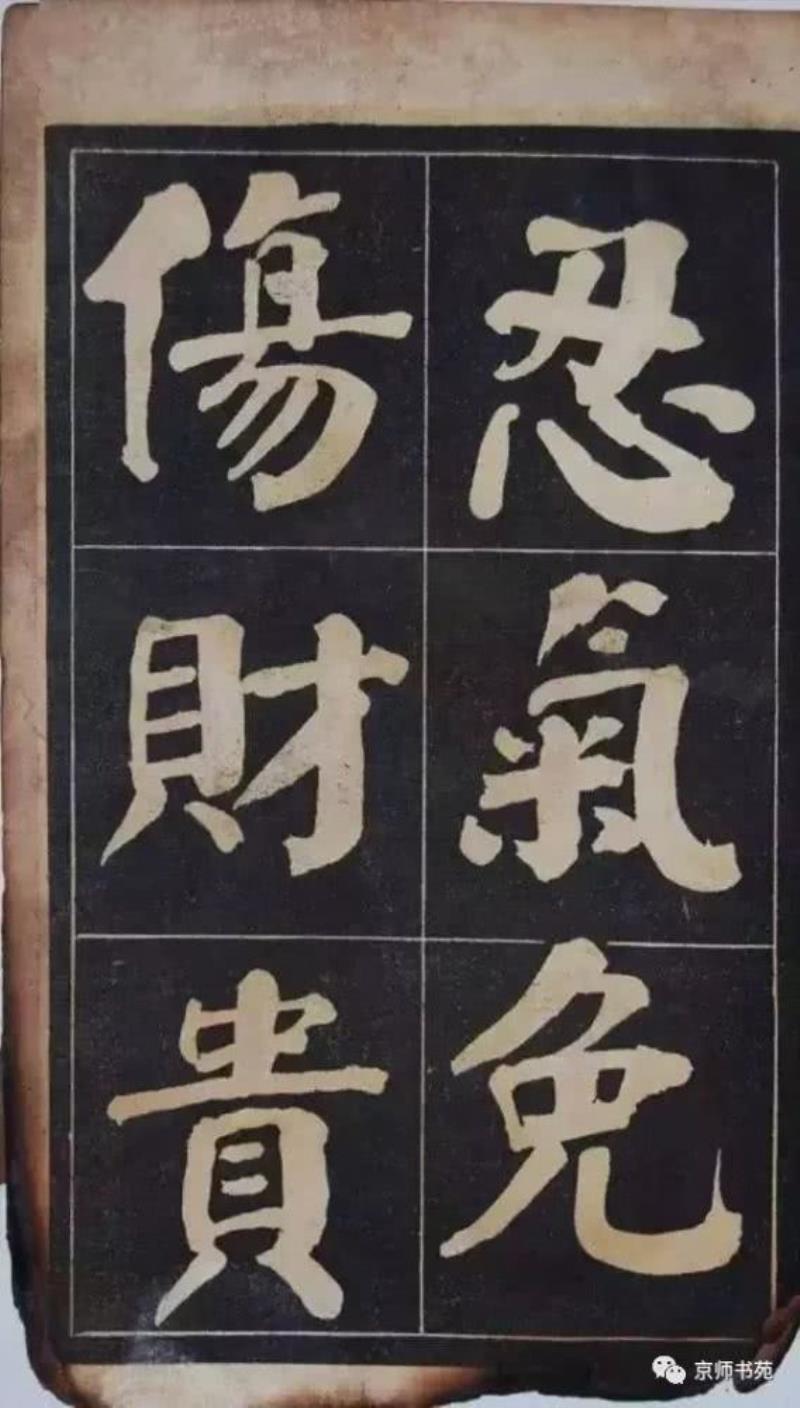 忍氣免
傷財貴
京师书苑